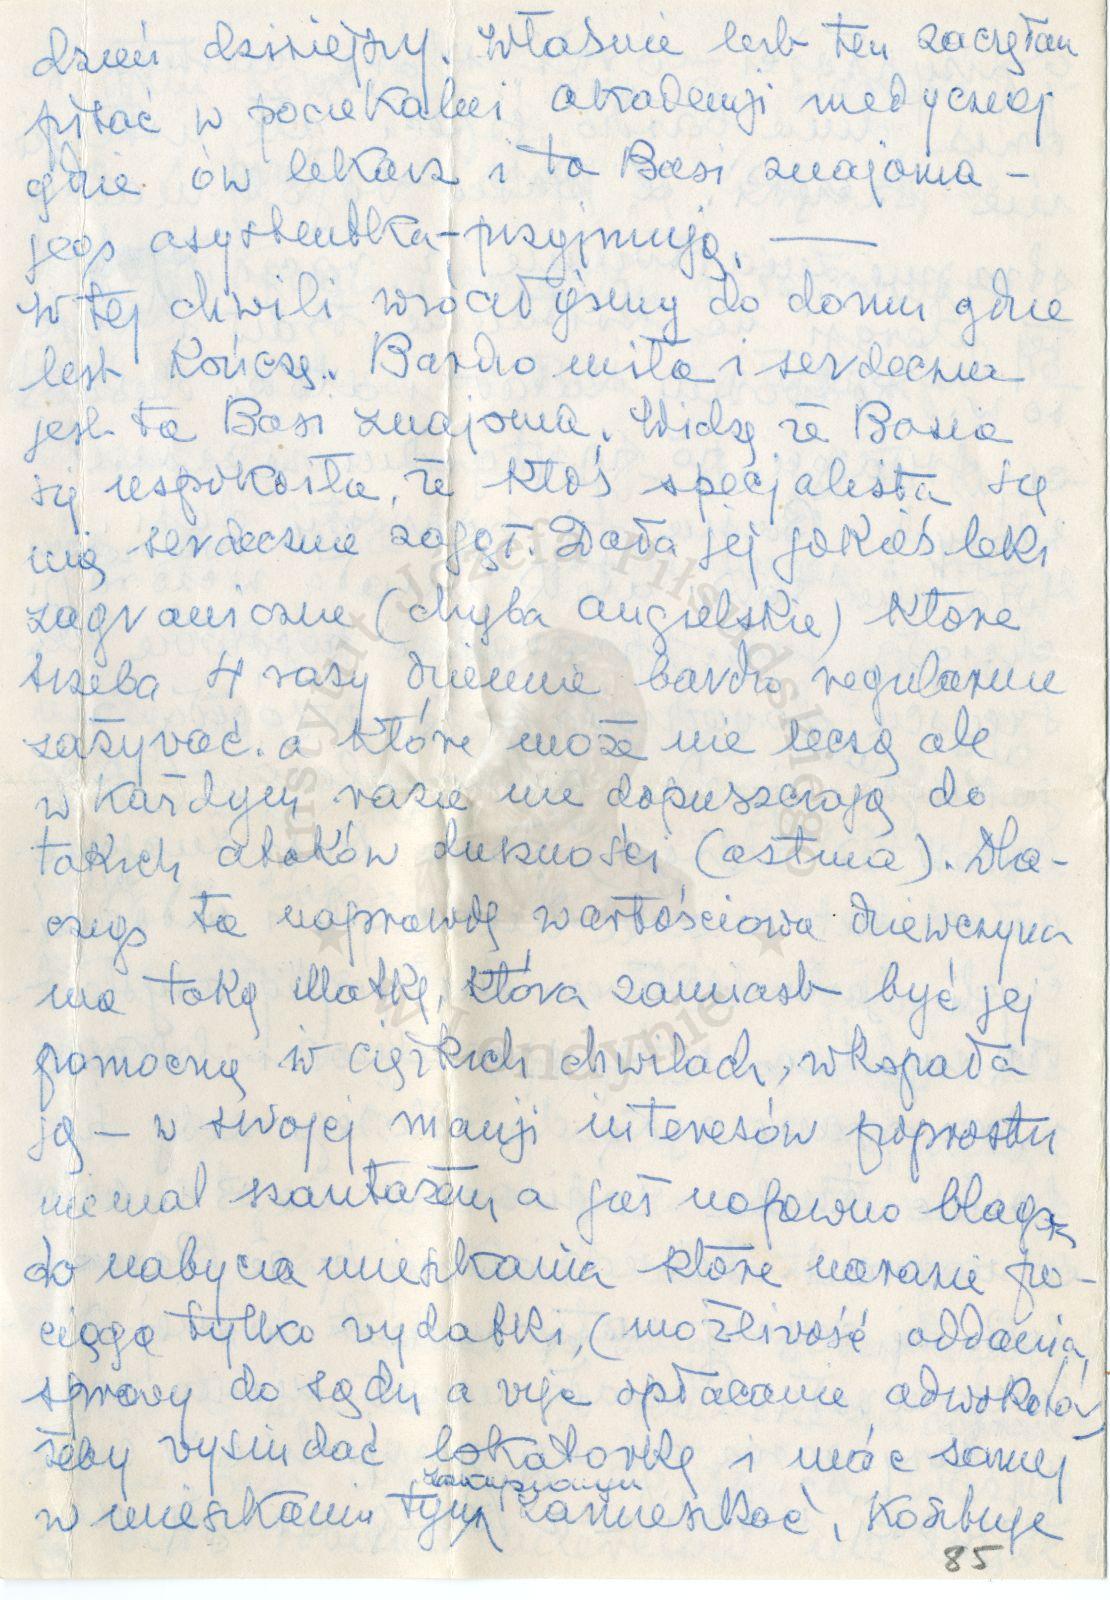 dzień dzisiejszy. Właśnie list ten zaczęłam
pisać w poczekalni akademji medycznej
gdzie ów lekarz i ta Basi znajoma -
jego asystentka - przyjmują. —
W tej chwili wróciłyśmy do domu gdzie
list kończę. Bardzo miła i serdeczna
jest ta Basi znajoma. Widzę że Basia
się uspokoiła, że ktoś specjalista się
nią serdecznie zajął. Dała jej jakieś leki
zagraniczne (chyba angielskie) które
trzeba 4 razy dziennie bardzo regularnie
zażywać. a które może nie leczą ale
w każdym razie nie dopuszczają do
takich ataków duszności (astma). Dla-
czego ta naprawdę wartościowa dziewczyna
ma taką Matkę, która zamiast być jej
pomocną w ciężkich chwilach, wkopała
ją - w swojej manji interesów poprostu
niemal szantażem a już napewno blagą
do nabycia mieszkania które narazie po-
ciąga tylko wydatki, (możliwość oddania
sprawy do sądu a więc opłacanie adwokatów
żeby wysiudać lokatorkę i móc samej
zakupionym
w mieszkaniu tym zamieszkać,
85
Instytut Józefa Piłsudskiego
w Londynie